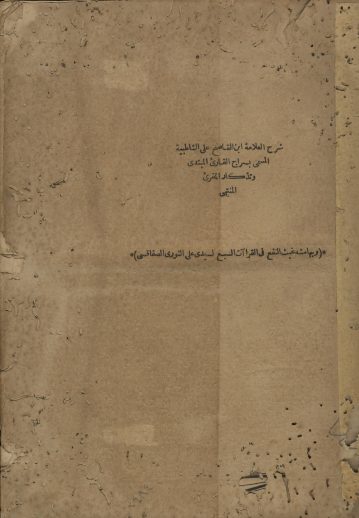 شرح العلامة ابن القاصح على الشاطبية
المسمى بسراج القارئ المبتدى
وتذكار المقرئ
المنتهى
*(وبهامشه غيث النفع فى القرا آت السبع لسيدى على النورى الصفاقسى)*